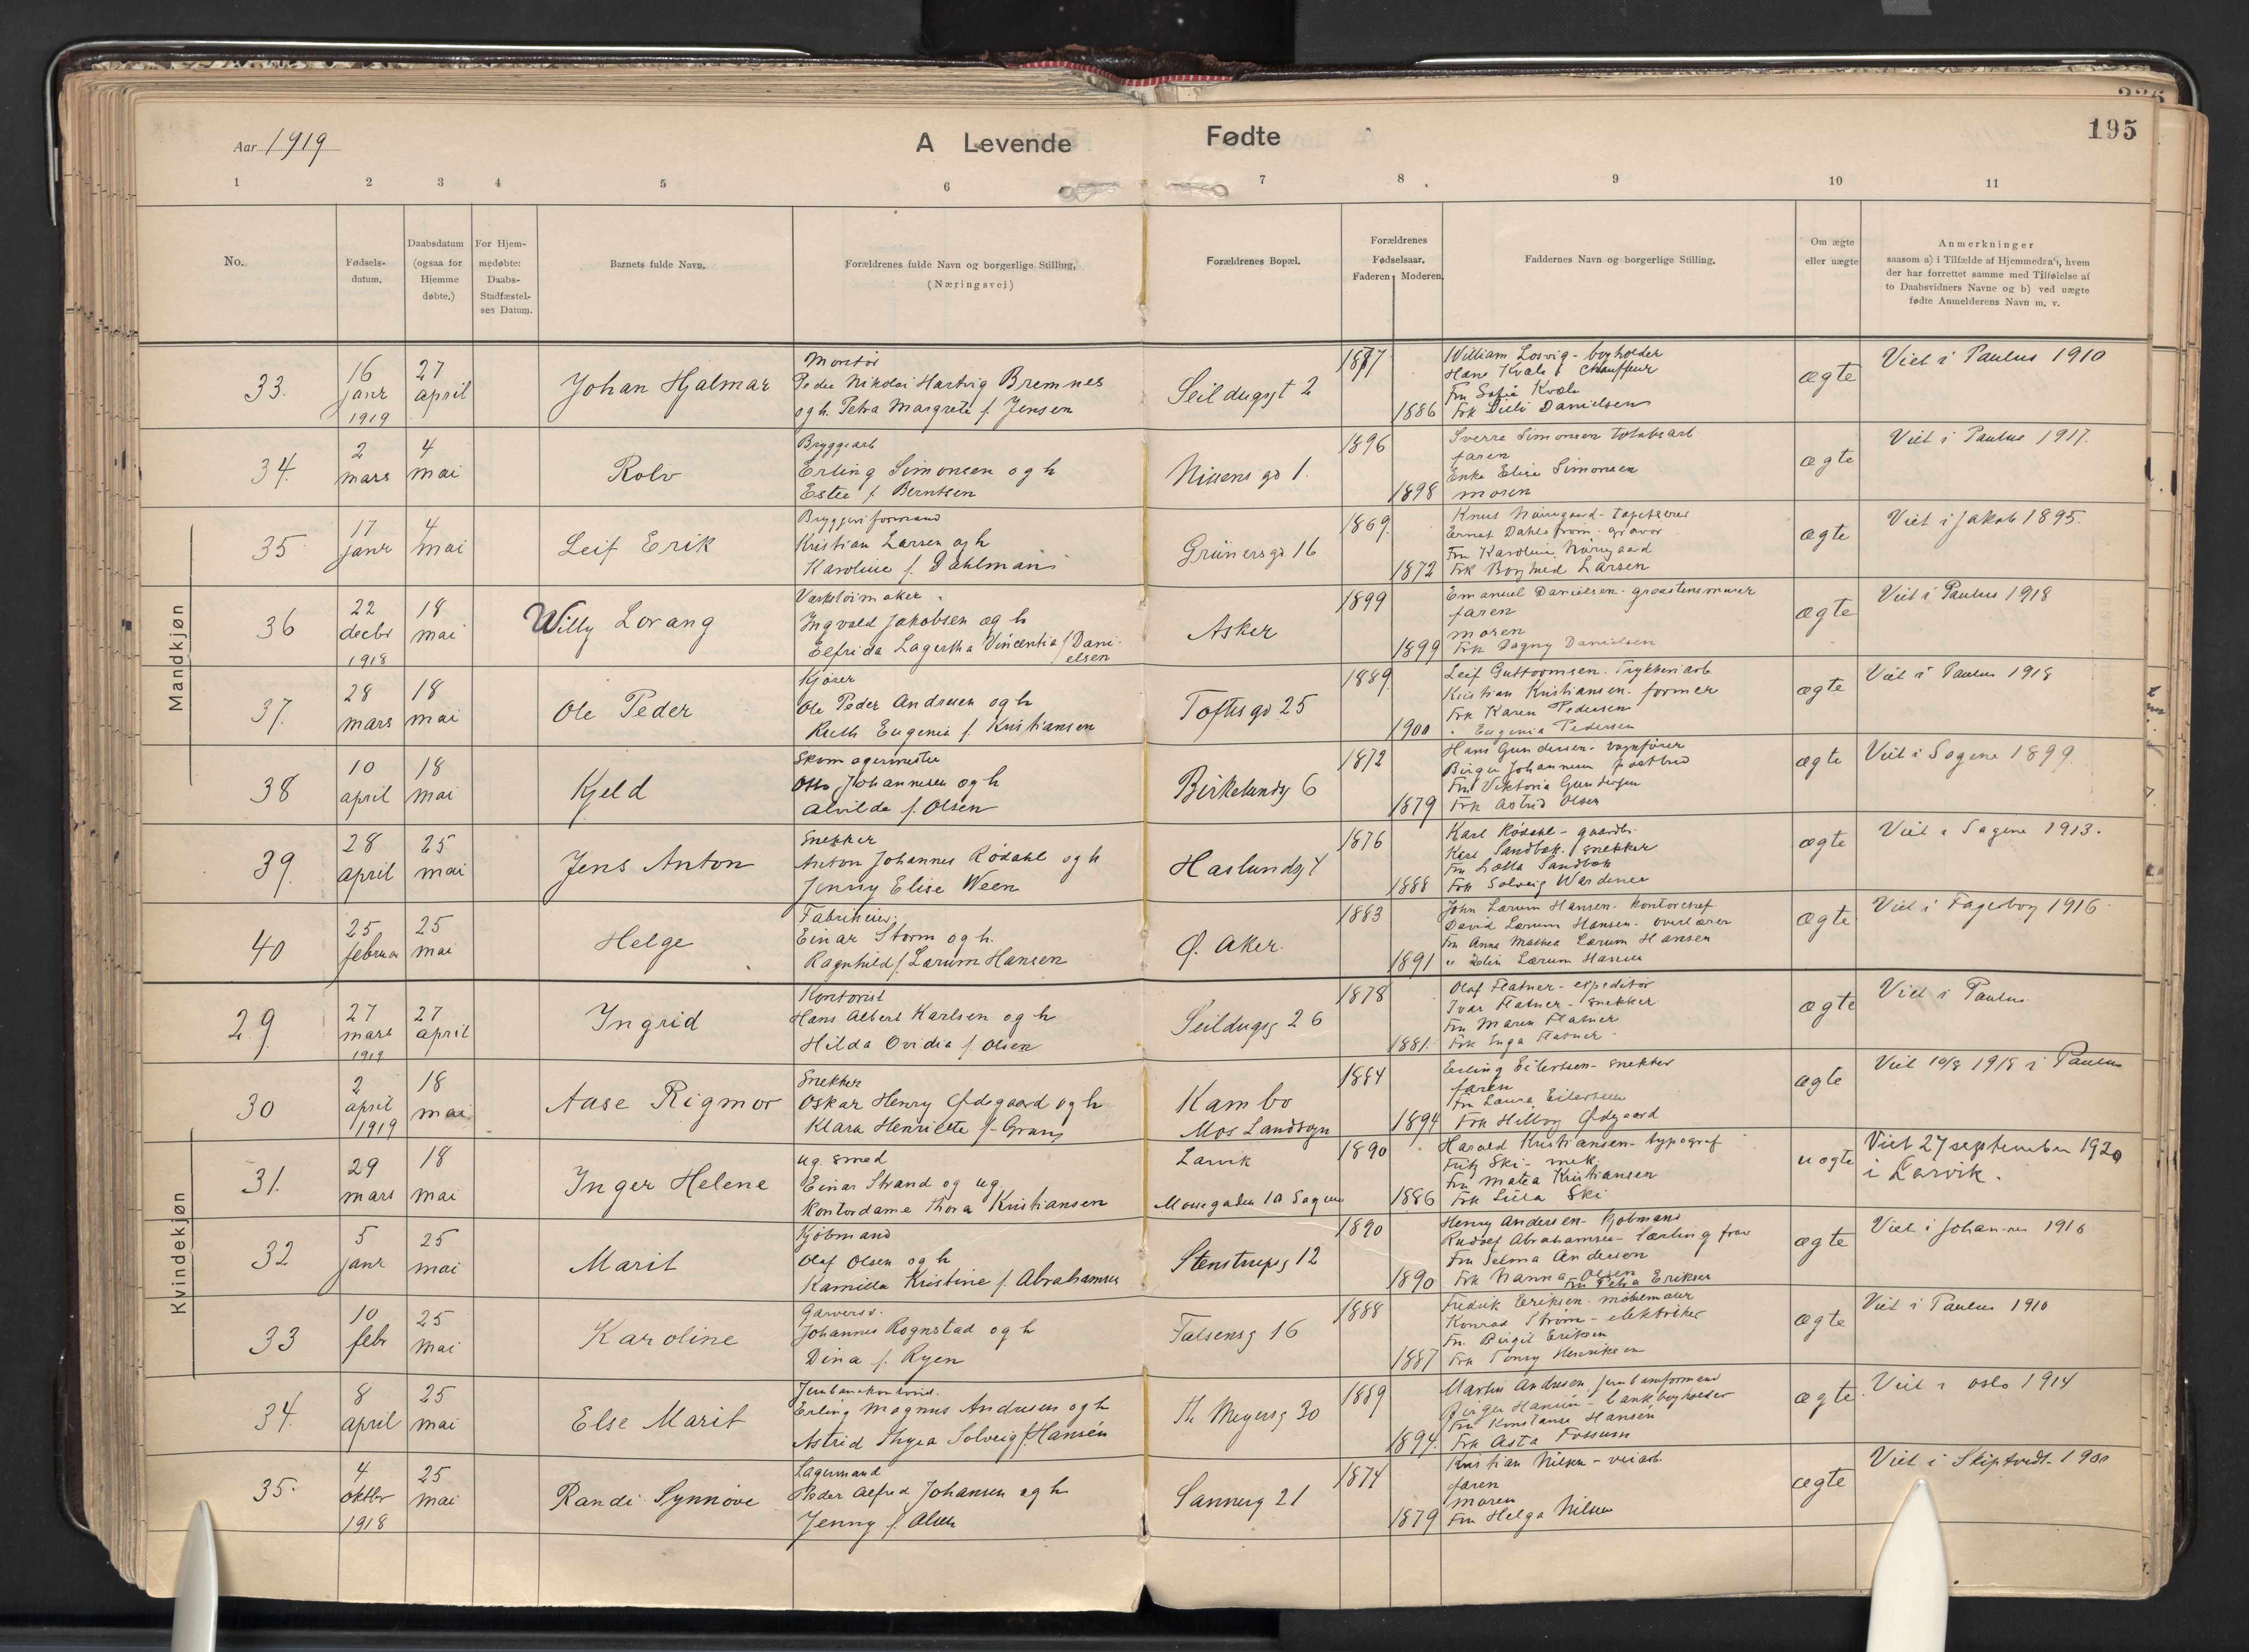 195
Aar 1919
A Levende Fødte
1 2 3 4 5 6 7 8 9 10 11
No.
Fødsels-
datum.
Daabsdatum
(ogsaa for
Hjemme
døbte.)
For Hjem-
medøbte:
Daabs-
Stadfæstel-
ses Datum.
Barnets fulde Navn.
Forældrenes fulde Navn og borgerlige Stilling.
(Næringsvei)
Forældrenes Bopæl.
Forældrenes
Fødselsaar.
Faderen Moderen
Faddernes Navn og borgerlige Stilling.
Om ægte
eller uægte
Anmerkninger
saasom a) i Tilfælde af Hjemmedaab, hvem
der har forrettet samme med Tilføielse af
to Daabsvidners Navne og b) ved uægte
fødte Anmelderens Navn m. v.
Mandkjøn
33.
16
janr
1919
27
april
Johan Hjalmar
Montør
Peder Nikolai Hartvig Bremnes
og h. Petra Margrete f. Jensen
Seildugsgt 2
1877
1886
William Losvig - bogholder
Hans Kvale - Chauffeur
Fru Sofie Kvale
Frk Lilli Danielsen
ægte
Viet i Paulus 1910
34.
2
mars
4
mai
Rolv
Bryggearb
Erling Simonsen og h
Ester f. Berntsen
Nissens gd 1.
1896
1898
Sverre Simonsen tobaksarb
faren
Enke Elise Simonsen
moren
ægte
Viet i Paulus 1917.
35
17
janr
4
mai
Leif Erik
Bryggeriformand
Kristian Larsen og h
Karoline f. Dahlman
Grünersgd 16
1869
1872
Knut Nørregaard - tapetserer
Ernst Dahlstrøm - gravør
Fru Karoline Nørregaard
Frk Borghild Larsen
ægte
Viet i Jakob 1895.
36
22
decbr
1918
18
mai
Willy Lorang
Verktøimaker
Ingvald Jakobsen og h
Elfrida Lagertha Vincentia f Dani-
elsen
Asker
1899
1899
Emanuel Danielsen - graastensmurer
faren
moren
Frk Dagny Danielsen
ægte
Viet i Paulus 1918
37.
28
mars
18
mai
Ole Peder
Kjører
Ole Peder Andresen og h
Ruth Eugenie f. Kristiansen
Toftesgd 25
1889
1900
Leif Guttormsen. Trykkeriarb
Kristian Kristiansen. former
Frk Karen Pedersen
" Eugenia Pedersen
ægte
Viet i Paulus 1918
38
10
april
18
mai
Kjeld
Skomagermester
Otto Johannesen og h
Alvilde f. Olsen
Birkelundsg 6
1872
1879
Hans Gundersen - vognfører
Birger Johannesen postbud
Fru Viktoria Gundersen
Frk Astrid Olsen
ægte
Viet i Sagene 1899
39.
28
april
25
mai
Jens Anton
Snekker
Anton Johannes Rødahl og h
Jenny Elise Ween
Haslundsg 4
1876
1888
Karl Rødahl - gaardbr.
Karl Sandbæk. snekker
Fru Lotta Sandbæk
Frk Solveig Wardener
ægte
Viet i Sagene 1913.
40
25
februar
25
mai
Helge
Fabrikeier.
Einar Storm og h.
Ragnhild f. Lærum Hansen
Ø. Aker.
1883
1891
John Lærum Hansen - kontorchef.
David Lærum Hansen - overlærer
Fru Anna Mathea Lærum Hansen
" Lærum Hansen
ægte
Viet i Fagerborg 1916.
Kvindekjøn
29
27
mars
1919
27
april
Ingrid
Kontorist
Hans Albert Karlsen og h
Hilda Ovidia f. Olsen
Seildugsg 26
1878
1881.
Olaf Flatner - expeditør
Ivar Flatner - snekker
Fru Maren Flatner
Frk Inga Flatner
ægte
Viet i Paulus
30
2
april
1919
18
mai
Aase Rigmor
Snekker
Oskar Henry Ødegaard og h
Klara Henriette f.
Kambo
Mos Landsogn
1884
1894
Erling Eilertsen - snekker
faren
Fru Laura Eilertsen
Frk Hilborg Ødegaard
ægte
Viet 10/8 1918 i Paulus
31.
29
mars
18
mai
Inger Helene
ug. smed
Einar Strand og ug.
Kontordame Thora Kristiansen
Larvik
Mossegaden 1a Sagene
1890
1886
Harald Kristiansen - typograf
Fritz Ski - mek.
Fru Matea Kristiansen
Frk Lilla Ski
uægte
Viet 27 september 1920
i Larvik.
32
5
janr
25
mai
Marit
Kjøbmand
Olaf Olsen og h
Kamilla Kristine f. Abrahamsen
Stenstrupsg 12
1890
1890
Henry Andersen - Kjøbmand
Rudolf Abrahamsen - Lærling
Fru Selma Andersen
Frk Nanna Olsen
Fru Petra Eriksen
ægte
Viet i Johannes 1916
33
10
febr
25
mai
Karoline
Garversv.
Johannes Rognstad og h
Dina f. Ryen
Falsensg 16
1888
1887
Fredrik Eriksen - møbelmaler
Konrad Strøm - elektriker
Fru Birgit Eriksen
Frk Tonny Henriksen
ægte
Viet i Paulus 1910
34.
8
april
25
mai
Else Marit
Jernbanekontorist.
Erling Magnus Andresen og h
Astrid Thyra Solveig f. Hansen
Th. Meyersg 30
1889
1894.
Martin Andresen jernbaneformand
Birger Hansen - bankbogholder
Fru Konstanse Hansen
Frk Asta Fossum
ægte
Viet i Oslo 1914
35.
4
oktbr
1918
25
mai
Randi Synnøve
Lagermand
Peder Alfred Johansen og h
Jenny f. Olsen
Sannerg 21
1874
1879
Kristian Nilsen - veiarb.
faren
moren
Fru Helga Nilsen
ægte
Viet i Skiptvedt 1900